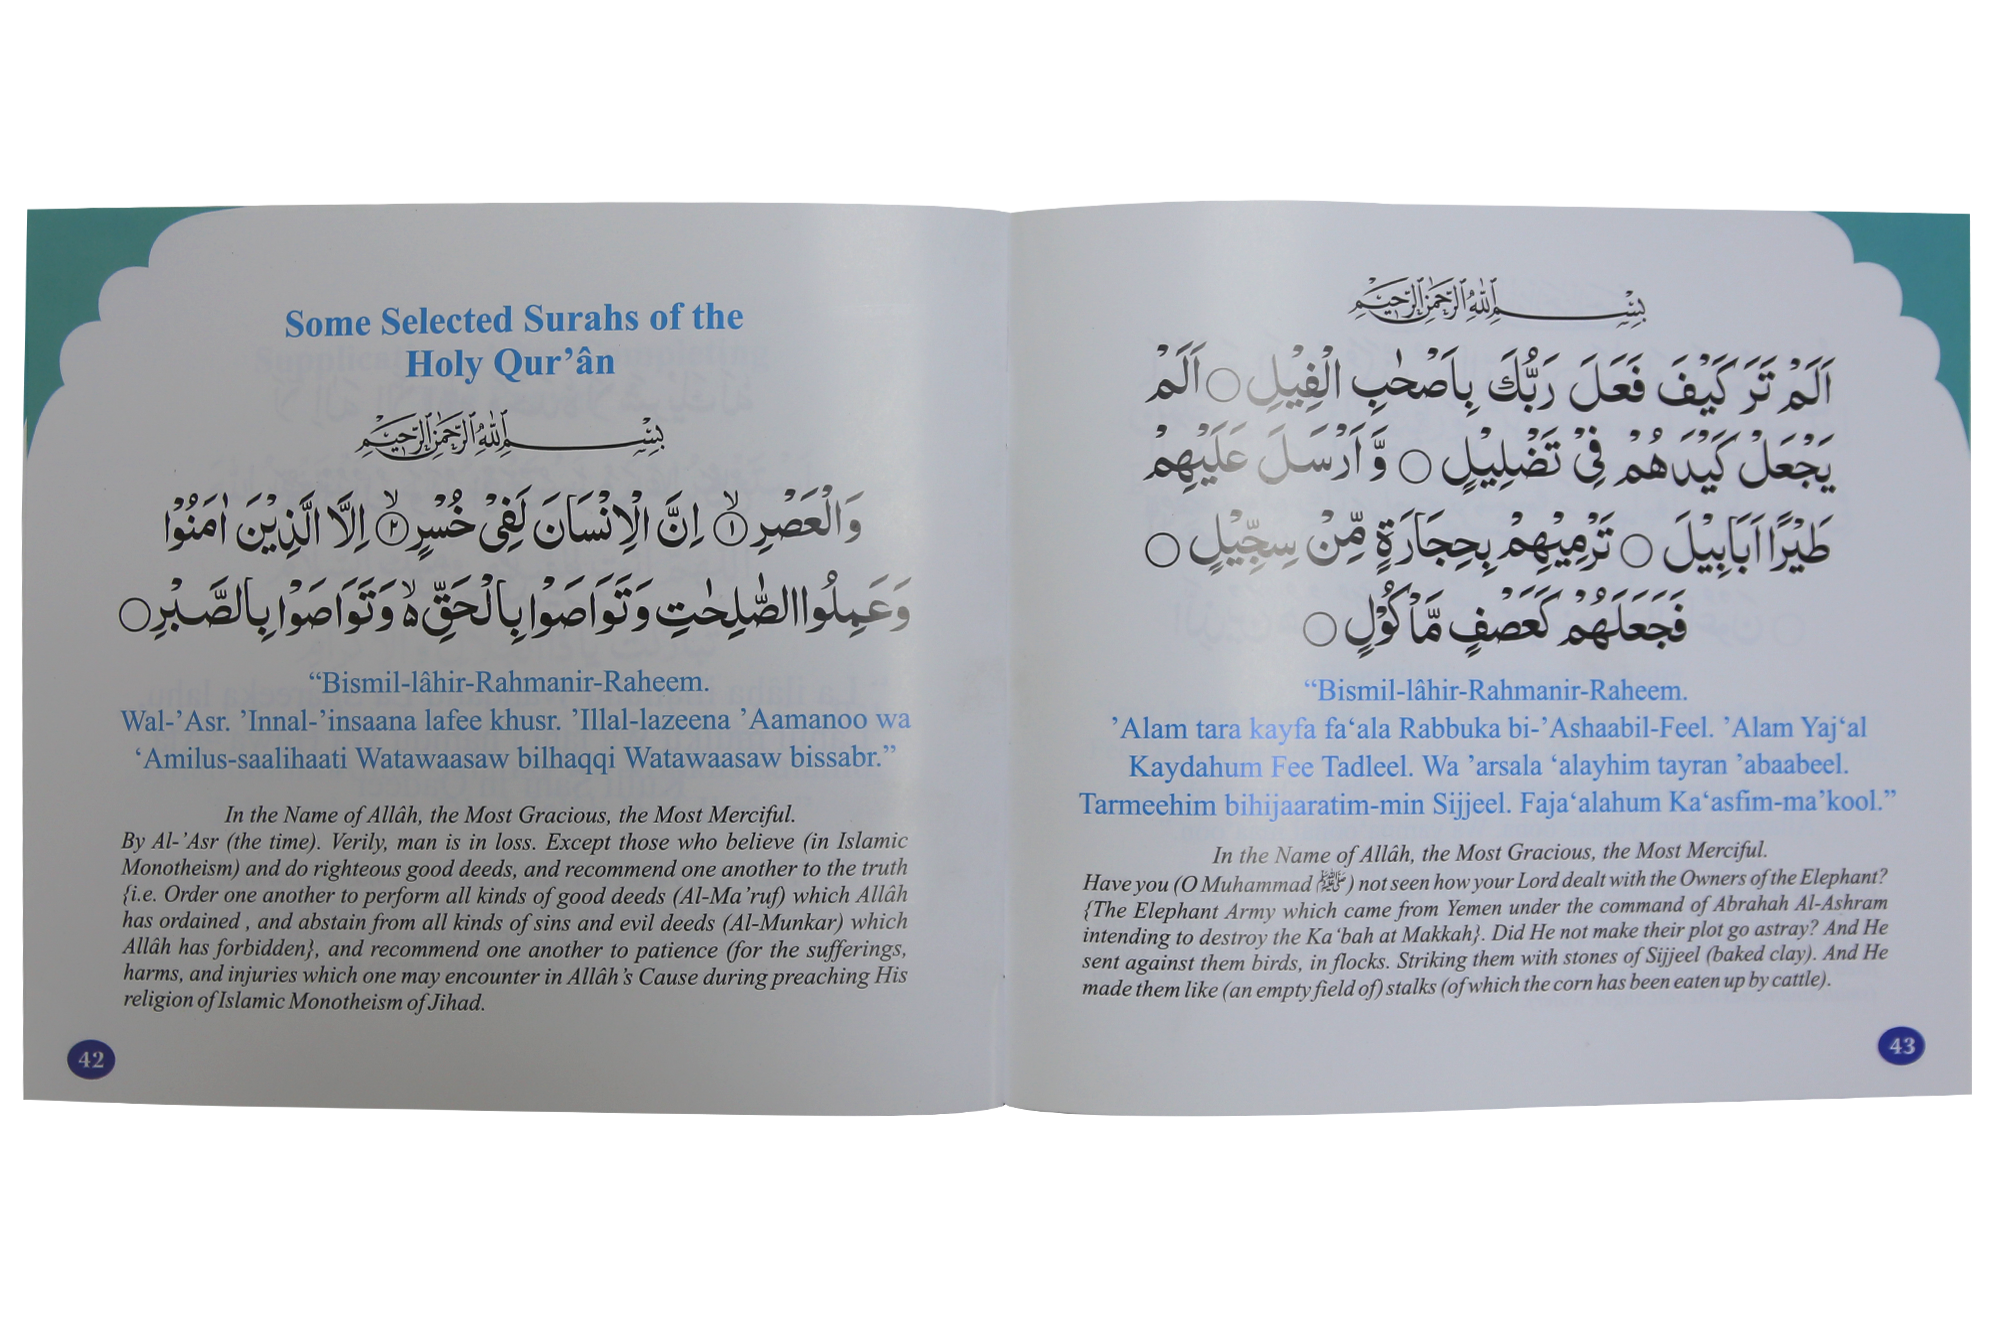 Some Selected Surahs of the
Holy Qur’ân
بِسْمِ اللهِ الرَّحْمٰنِ الرَّحِيْمِ
وَالْعَصْرِ ۙ﴿۱﴾ اِنَّ الْاِنْسَانَ لَفِيْ خُسْرٍ ۙ﴿۲﴾ اِلَّا الَّذِيْنَ اٰمَنُوْا
وَعَمِلُوا الصّٰلِحٰتِ وَتَوَاصَوْا بِالْحَقِّ ۙ۬ وَتَوَاصَوْا بِالصَّبْرِ ○
“Bismil-lâhir-Rahmanir-Raheem.
Wal-’Asr. ’Innal-’insaana lafee khusr. ’Illal-lazeena ’Aamanoo wa
‘Amilus-saalihaati Watawaasaw bilhaqqi Watawaasaw bissabr.”
In the Name of Allâh, the Most Gracious, the Most Merciful.
By Al-’Asr (the time). Verily, man is in loss. Except those who believe (in Islamic
Monotheism) and do righteous good deeds, and recommend one another to the truth
{i.e. Order one another to perform all kinds of good deeds (Al-Ma’ruf) which Allâh
has ordained , and abstain from all kinds of sins and evil deeds (Al-Munkar) which
Allâh has forbidden}, and recommend one another to patience (for the sufferings,
harms, and injuries which one may encounter in Allâh’s Cause during preaching His
religion of Islamic Monotheism of Jihad.
42
بِسْمِ اللهِ الرَّحْمٰنِ الرَّحِيْمِ
اَلَمْ تَرَ كَيْفَ فَعَلَ رَبُّكَ بِاَصْحٰبِ الْفِيْلِ ○ اَلَمْ
يَجْعَلْ كَيْدَهُمْ فِيْ تَضْلِيْلٍ ○ وَّ اَرْسَلَ عَلَيْهِمْ
طَيْرًا اَبَابِيْلَ ○ تَرْمِيْهِمْ بِحِجَارَةٍ مِّنْ سِجِّيْلٍ ○
فَجَعَلَهُمْ كَعَصْفٍ مَّاْكُوْلٍ ○
“Bismil-lâhir-Rahmanir-Raheem.
’Alam tara kayfa fa‘ala Rabbuka bi-’Ashaabil-Feel. ’Alam Yaj‘al
Kaydahum Fee Tadleel. Wa ’arsala ‘alayhim tayran ’abaabeel.
Tarmeehim bihijaaratim-min Sijjeel. Faja‘alahum Ka‘asfim-ma’kool.”
In the Name of Allâh, the Most Gracious, the Most Merciful.
Have you (O Muhammad ﷺ) not seen how your Lord dealt with the Owners of the Elephant?
{The Elephant Army which came from Yemen under the command of Abrahah Al-Ashram
intending to destroy the Ka‘bah at Makkah}. Did He not make their plot go astray? And He
sent against them birds, in flocks. Striking them with stones of Sijjeel (baked clay). And He
made them like (an empty field of) stalks (of which the corn has been eaten up by cattle).
43